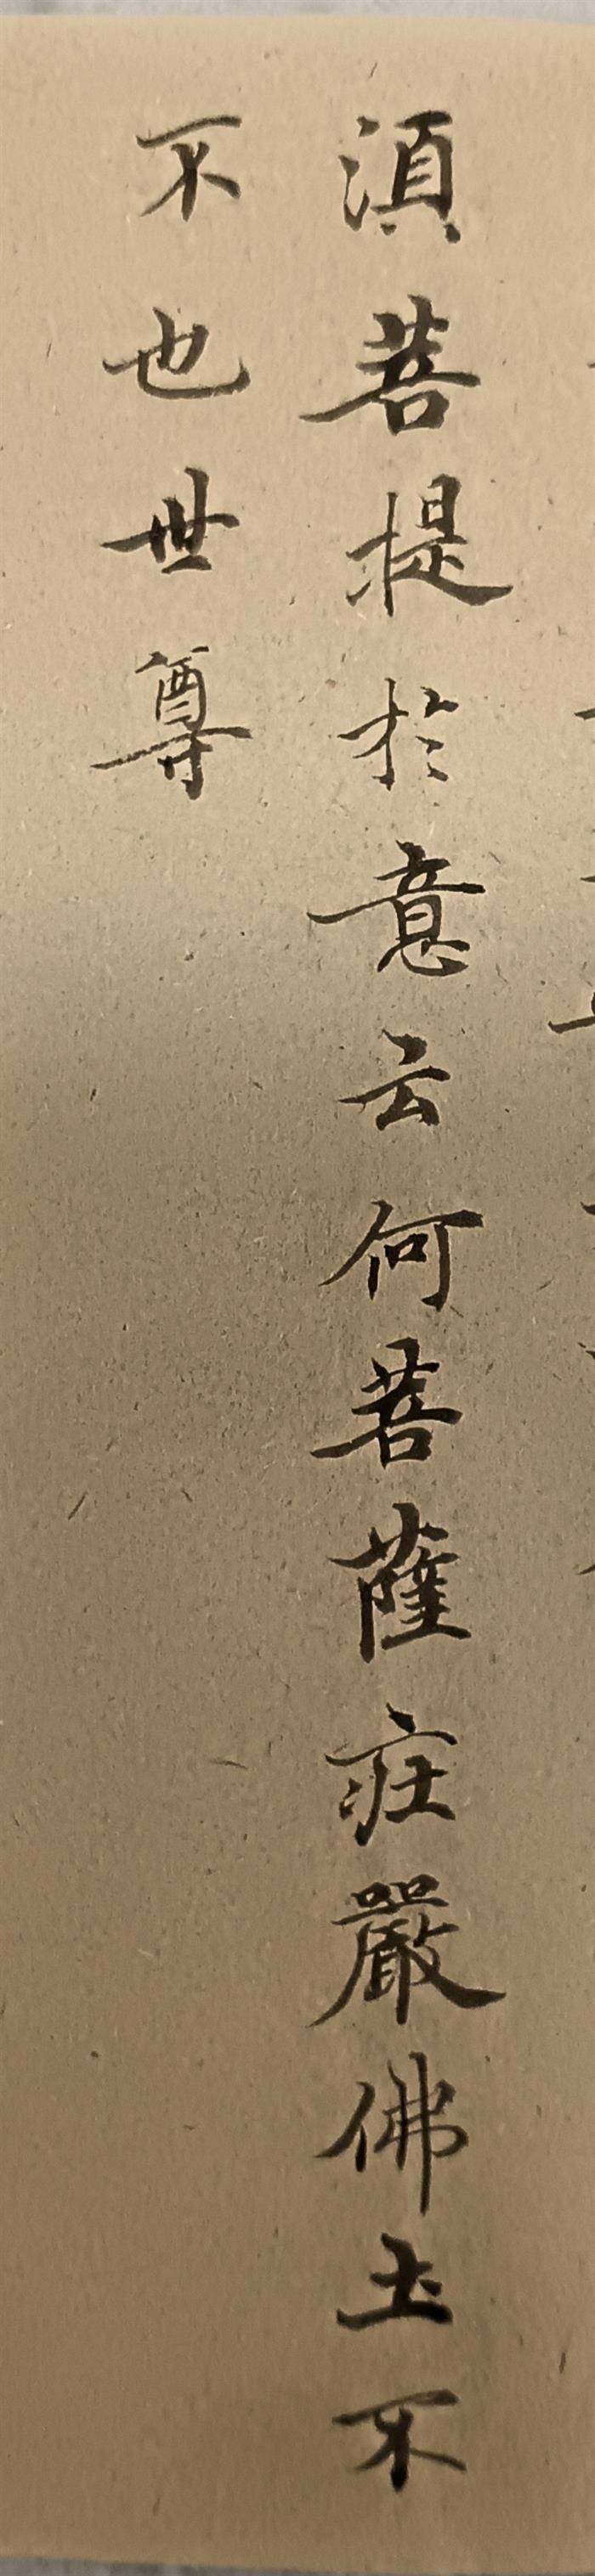 須菩提於意云何菩薩莊嚴佛土不
不也世尊